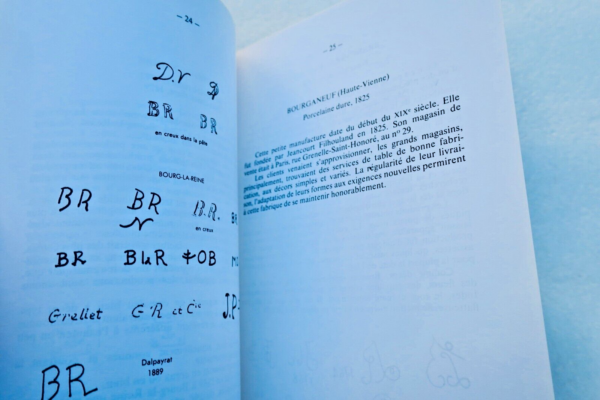 — 24 —
D.V
BR BR
en creux dans la pâte
BOURG-LA-REINE
BR BR B.R.
en creux
BR BLR OB
Grellet G·R et Cie J.P
BR
Dalpayrat
1889
— 25 —
BOURGANEUF (Haute-Vienne)
Porcelaine dure, 1825
Cette petite manufacture date du début du XIXe siècle. Elle
fut fondée par Jeancourt Filhouland en 1825. Son magasin de
vente était à Paris, rue Grenelle-Saint-Honoré, au no 29.
Les clients venaient s'approvisionner, les grands magasins,
principalement, trouvaient des services de table de bonne fabri-
cation, aux décors simples et variés. La régularité de leur livrai-
son, l'adaptation de leurs formes aux exigences nouvelles permirent
à cette fabrique de se maintenir honorablement.